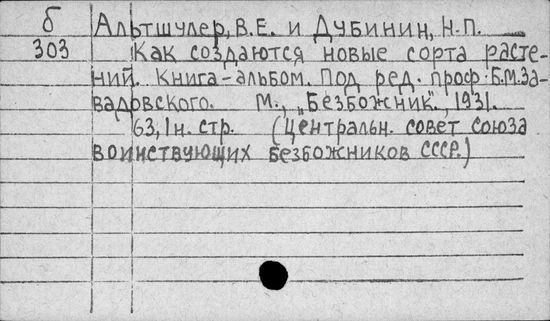 б Альтшулер, В.Е. и Дубинин, Н.П.
303 Как создаются новые сорта расте-
ний. Книга-альбом. Под ред. проф. Б.М.За-
вадовского. М., "Безбожник", 1931.
63,1н. стр. (Центральн. совет союза
воинствующих безбожников СССР.)